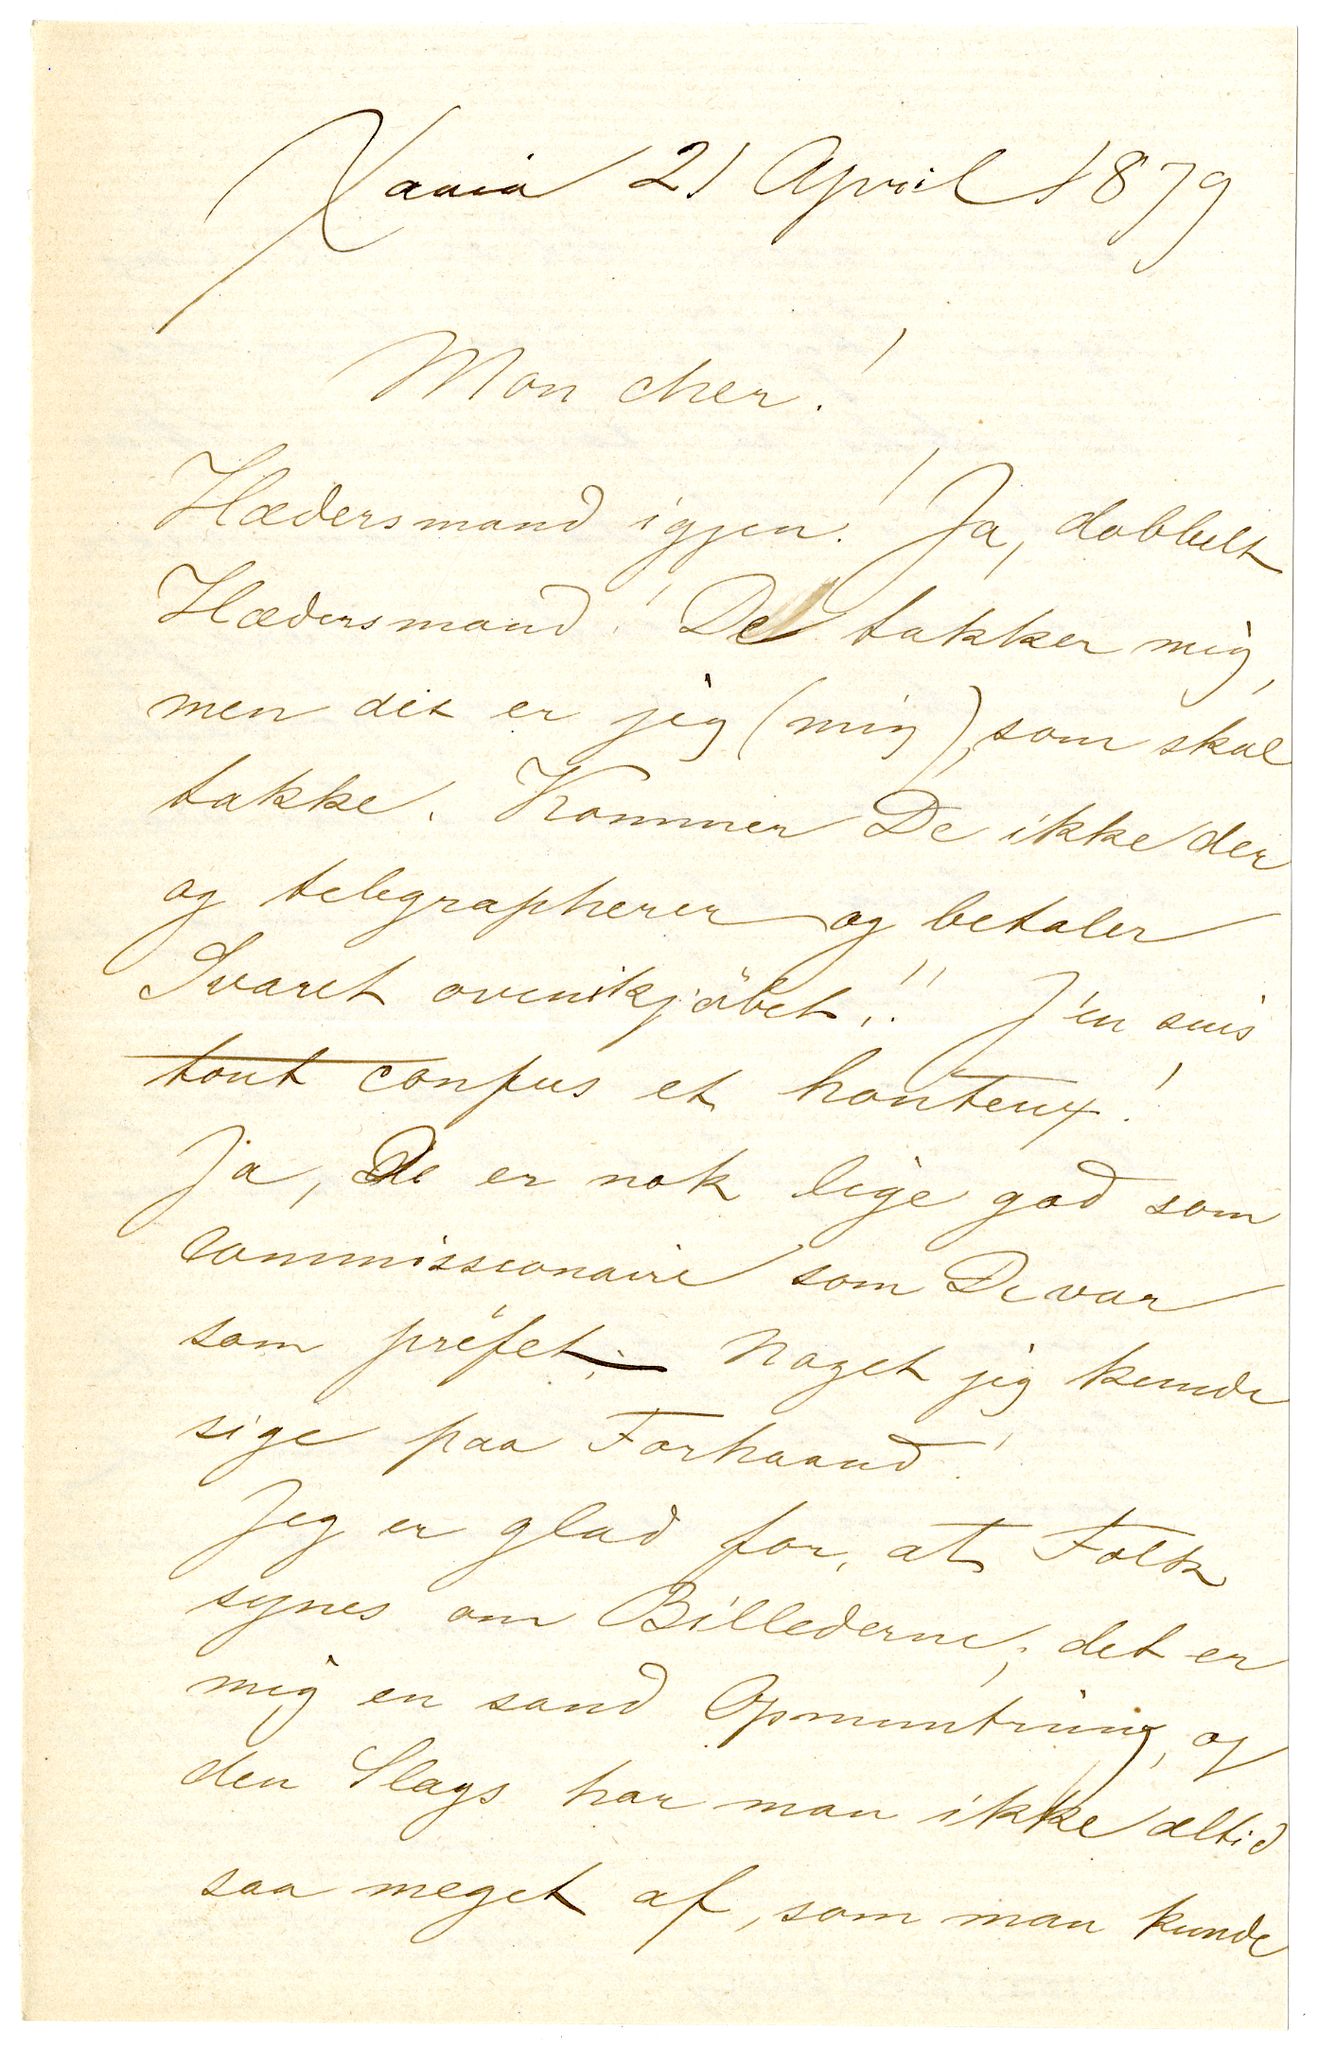 Xania 21 April 1879
Mon cher!
Hædersmand igjen! Ja, dobbelt
Hædersmand! De takker mig,
men det er jeg (mig), som skal
takke. Kommer De ikke der
og telegrapherer og betaler
Svaret ovenikjöbet!! J'en suis
tout confus et honteux!
Ja, De er nok lige god som
Commissionaire som De var
som préfet; – Noget jeg kunde
sige paa Forhaand!
Jeg er glad for, at Folk
synes om Billederne; det er
mig en sand Opmuntring, og
den Slags har man ikke altid
saa meget af, som man kunde